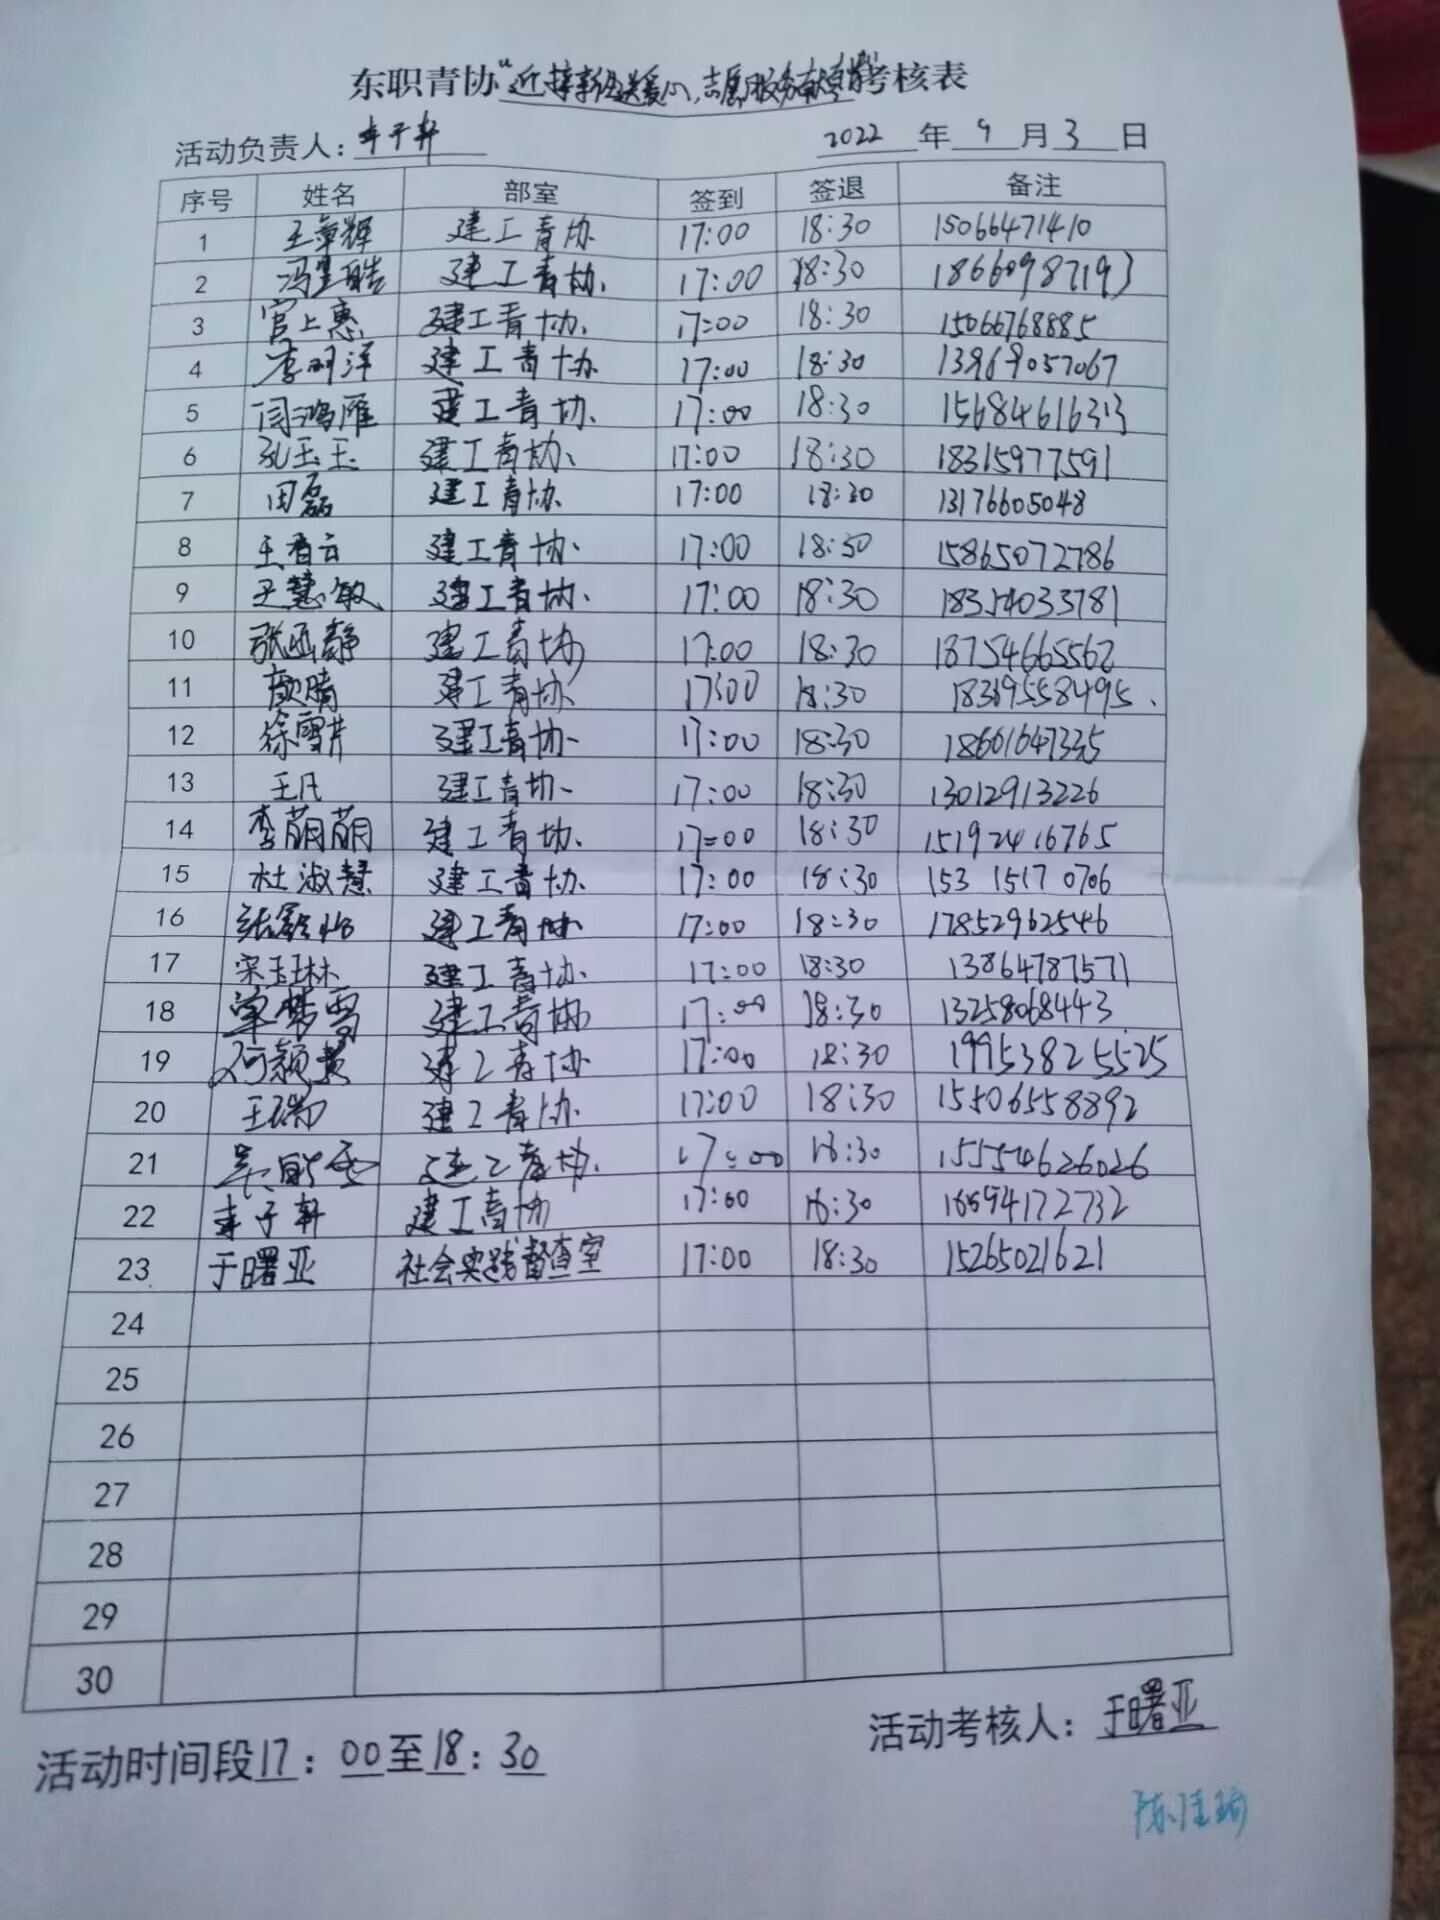 东职青协"迎接新生送爱心，志愿服务献青春"考核表
活动负责人：丰子轩 2022 年 9 月 3 日
序号 姓名 部室 签到 签退 备注
1 王章辉 建工青协 17:00 18:30 15066471410
2 冯皇皓 建工青协. 17:00 18:30 18660987193
3 官上惠 建工青协. 17:00 18:30 15066768885
4 李明洋 建工青协 17:00 18:30 13969057067
5 闫鸿雁 建工青协. 17:00 18:30 15684616313
6 孔玉玉 建工青协、 17:00 18:30 18315977591
7 田磊 建工青协. 17:00 18:30 13176605048
8 王香云 建工青协. 17:00 18:30 15865072786
9 王慧敏 建工青协. 17:00 18:30 18354033781
10 张函静 建工青协 17:00 18:30 18754665562
11 颜晴 建工青协. 17:00 18:30 18319558495.
12 徐雪芹 建工青协. 17:00 18:30 18661647335
13 王凡 建工青协、 17:00 18:30 13012913226
14 李萌萌 建工青协. 17:00 18:30 15192416765
15 杜淑慧 建工青协 17:00 18:30 153 1517 0706
16 建工青协 17:00 18:30 17852962546
17 宋玉琳 建工青协 17:00 18:30 13864787571
18 单梦雪 建工青协 17:00 18:30 13258068443
19 建工青协 17:00 18:30 19953825525
20 王瑞 建工青协 17:00 18:30 15506558892
21 建工青协. 17:00 18:30 15554626026
22 丰子轩 建工青协 17:00 18:30 16594172732
23 于曙亚 社会实践督查室 17:00 18:30 15265021621
24
25
26
27
28
29
30
活动考核人：于曙亚
活动时间段17：00至18：30
陈佳琦